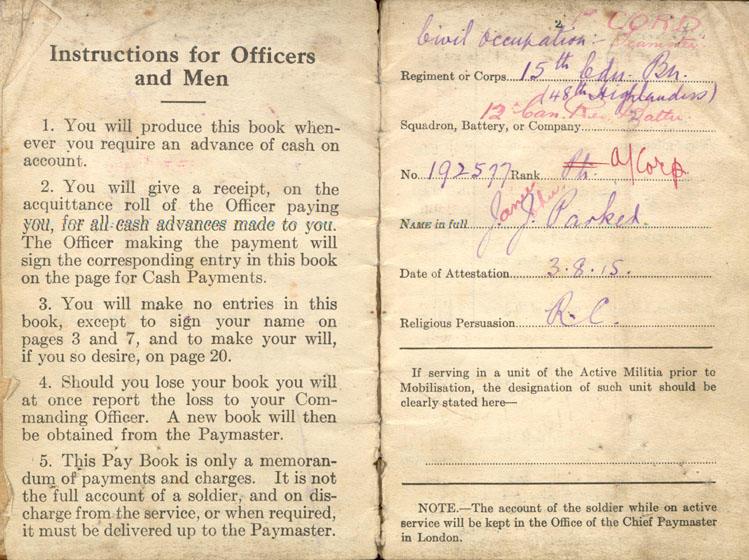 Instructions for Officers
and Men
1. You will produce this book when-
ever you require an advance of cash on
account.
2. You will give a receipt, on the
acquittance roll of the Officer paying
you, for all cash advances made to you.
The Officer making the payment will
sign the corresponding entry in this book
on the page for Cash Payments.
3. You will make no entries in this
book, except to sign your name on
pages 3 and 7, and to make your will,
if you so desire, on page 20.
4. Should you lose your book you will
at once report the loss to your Com-
manding Officer. A new book will then
be obtained from the Paymaster.
5. This Pay Book is only a memoran-
dum of payments and charges. It is not
the full account of a soldier, and on dis-
charge from the service, or when required,
it must be delivered up to the Paymaster.
2
Civil Occupation:- Teamster
Regiment or Corps 15th Cdn. Bn.
(48th Highlanders)
12th Can. Res. Battn.
Squadron, Battery, or Company
No. 192577 Rank Pte. A/Corp
NAME in full J. Parker.
Date of Attestation 3.8.15.
Religious Persuasion R.C.
If serving in a unit of the Active Militia prior to
Mobilisation, the designation of such unit should be
clearly stated here—
NOTE.—The account of the soldier while on active
service will be kept in the Office of the Chief Paymaster
in London.